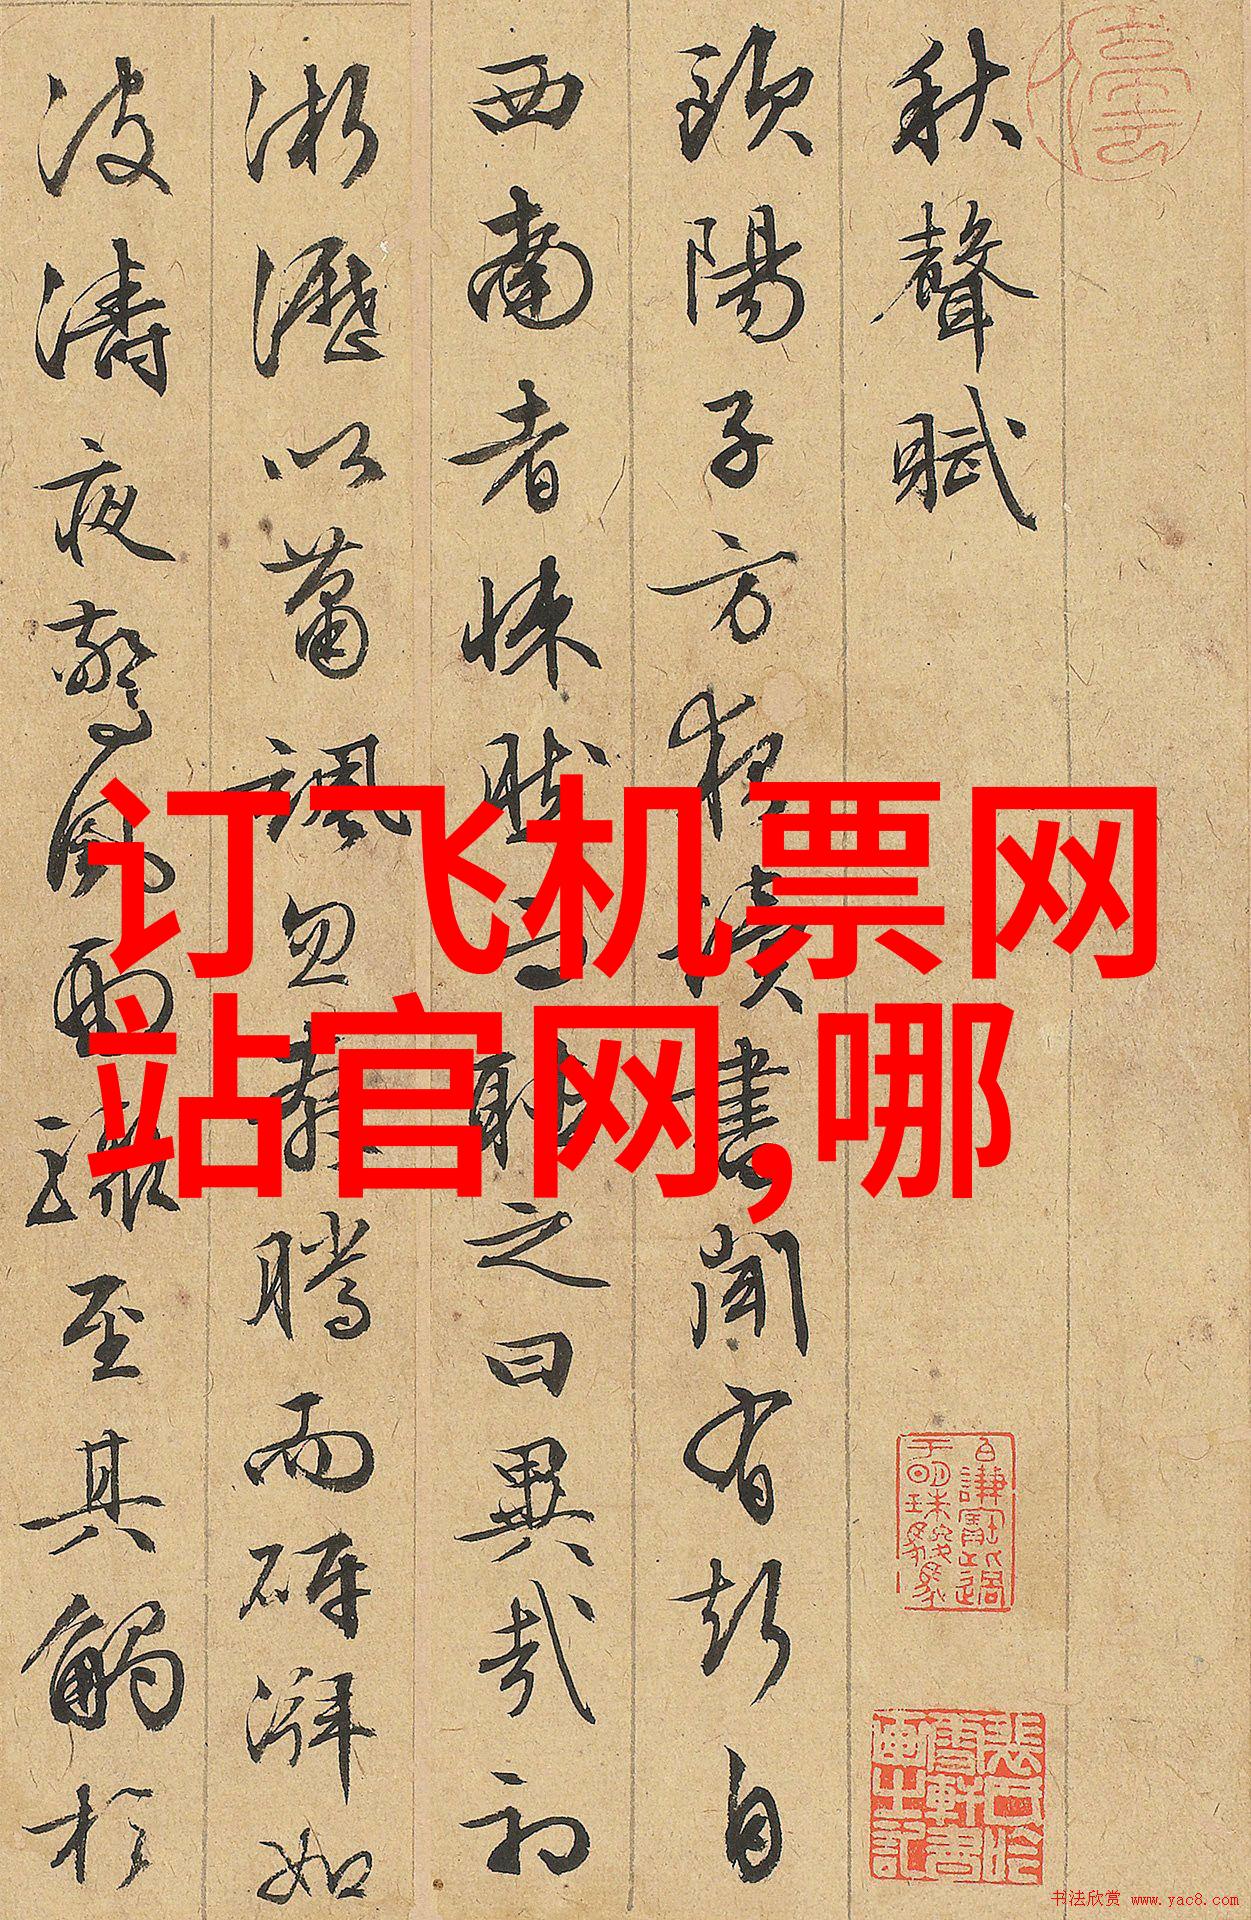 停雲
秋聲賦
歐陽子方夜讀書聞有聲自
西南者悚然而聽之曰異哉初
淅瀝以蕭颯忽奔騰而砰湃如
波濤夜驚風雨驟至其觸於
订飞机票网
站官网,哪
书法欣赏 www.yac8.com